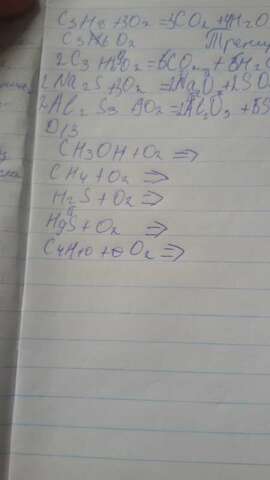 C3H8 + 3O2 = 3CO2 + 4H2O
C3H6 O2
2C3H6 9O2 = 6CO2 + 6H2O
2Na2S + 3O2 = 2Na2O + 2SO2
2Al2S3 9O2 = 2Al2O3
D/З
CH3OH + O2 ⇒
CH4 + O2 ⇒
H2S + O2 ⇒
HgS + O2 ⇒
C4H10 + O2 ⇒